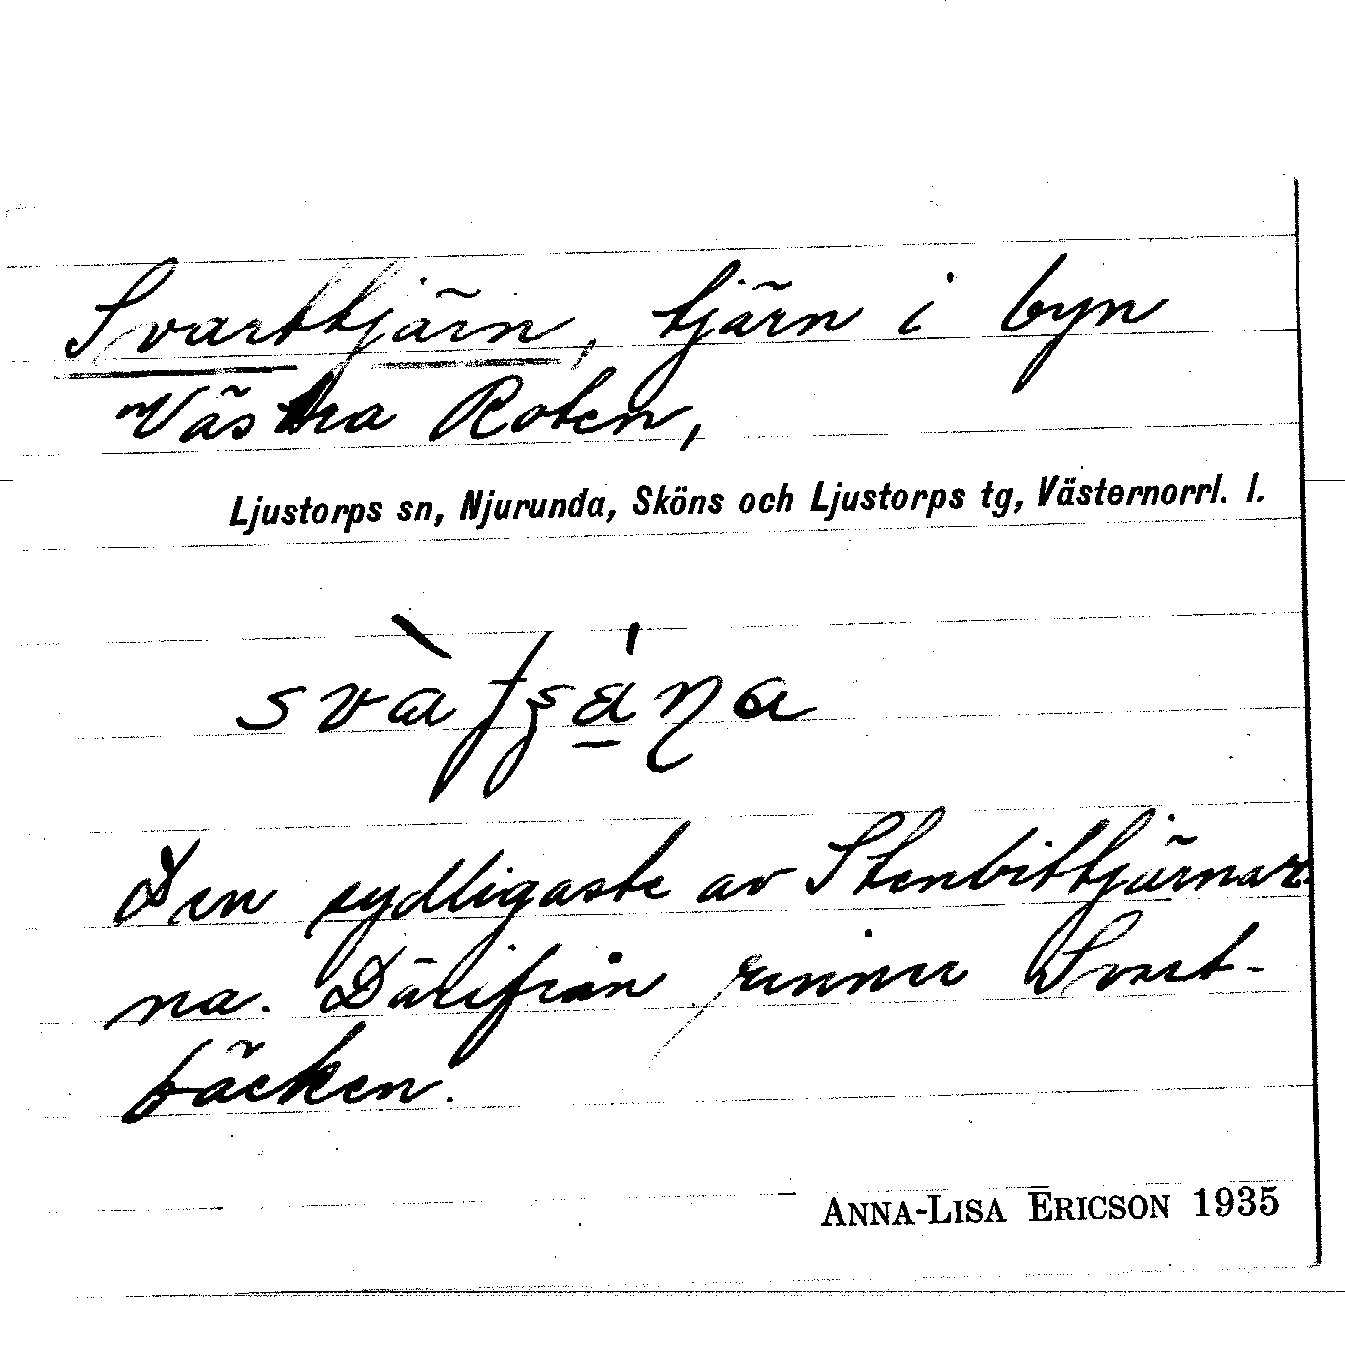 Svarttjärn, tjärn i byn
Västra Roten,
Ljustorps sn, Njurunda, Sköns och Ljustorps tg, Västernorrl. l.
Den sydligaste av Stenbittjärnar-
na. Därifrån rinner Svart-
bäcken.
ANNA-LISA ERICSON 1935